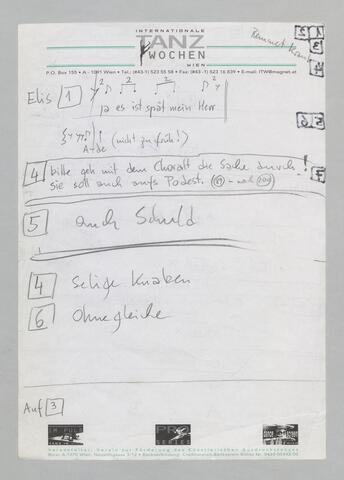 INTERNATIONALE
TANZ
WOCHEN
WIEN
P.O. Box 155 • A - 1091 Wien • Tel.: (#43-1) 523 55 58 • Fax: (#43 -1) 523 16 839 • E-mail: ITW@magnet.at
Elis 1
ja es ist spät mein Herr
A-de (nicht zu früh!)
4 bitte geh mit dem Choralt die Sache durch!
sie soll auch aufs Podest.
5 auch Schuld
4 selige Knaben
6 Ohnegleiche
Auf 3
IM PULS
Veranstalter: Verein zur Förderung des Künstlerischen Ausdruckstanzes